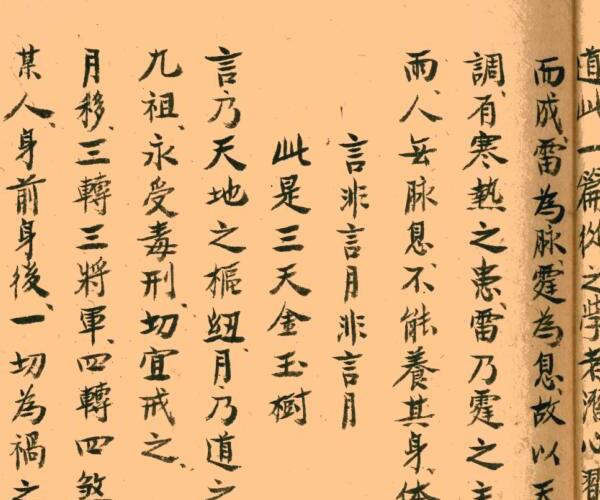 道此一篇從之學者潛心翫
而成、雷為脉、霆為息、故以天
調、有寒熱之患、雷乃霆之主
雨、人無脉息、不能養其身、体
言非言月非言月
此是三天金玉樹
言乃天地之樞紐、月乃道之
九祖、永受毒刑、切宜戒之、
月移、三轉三將軍、四轉四煞
某人、身前身後、一切為禍之